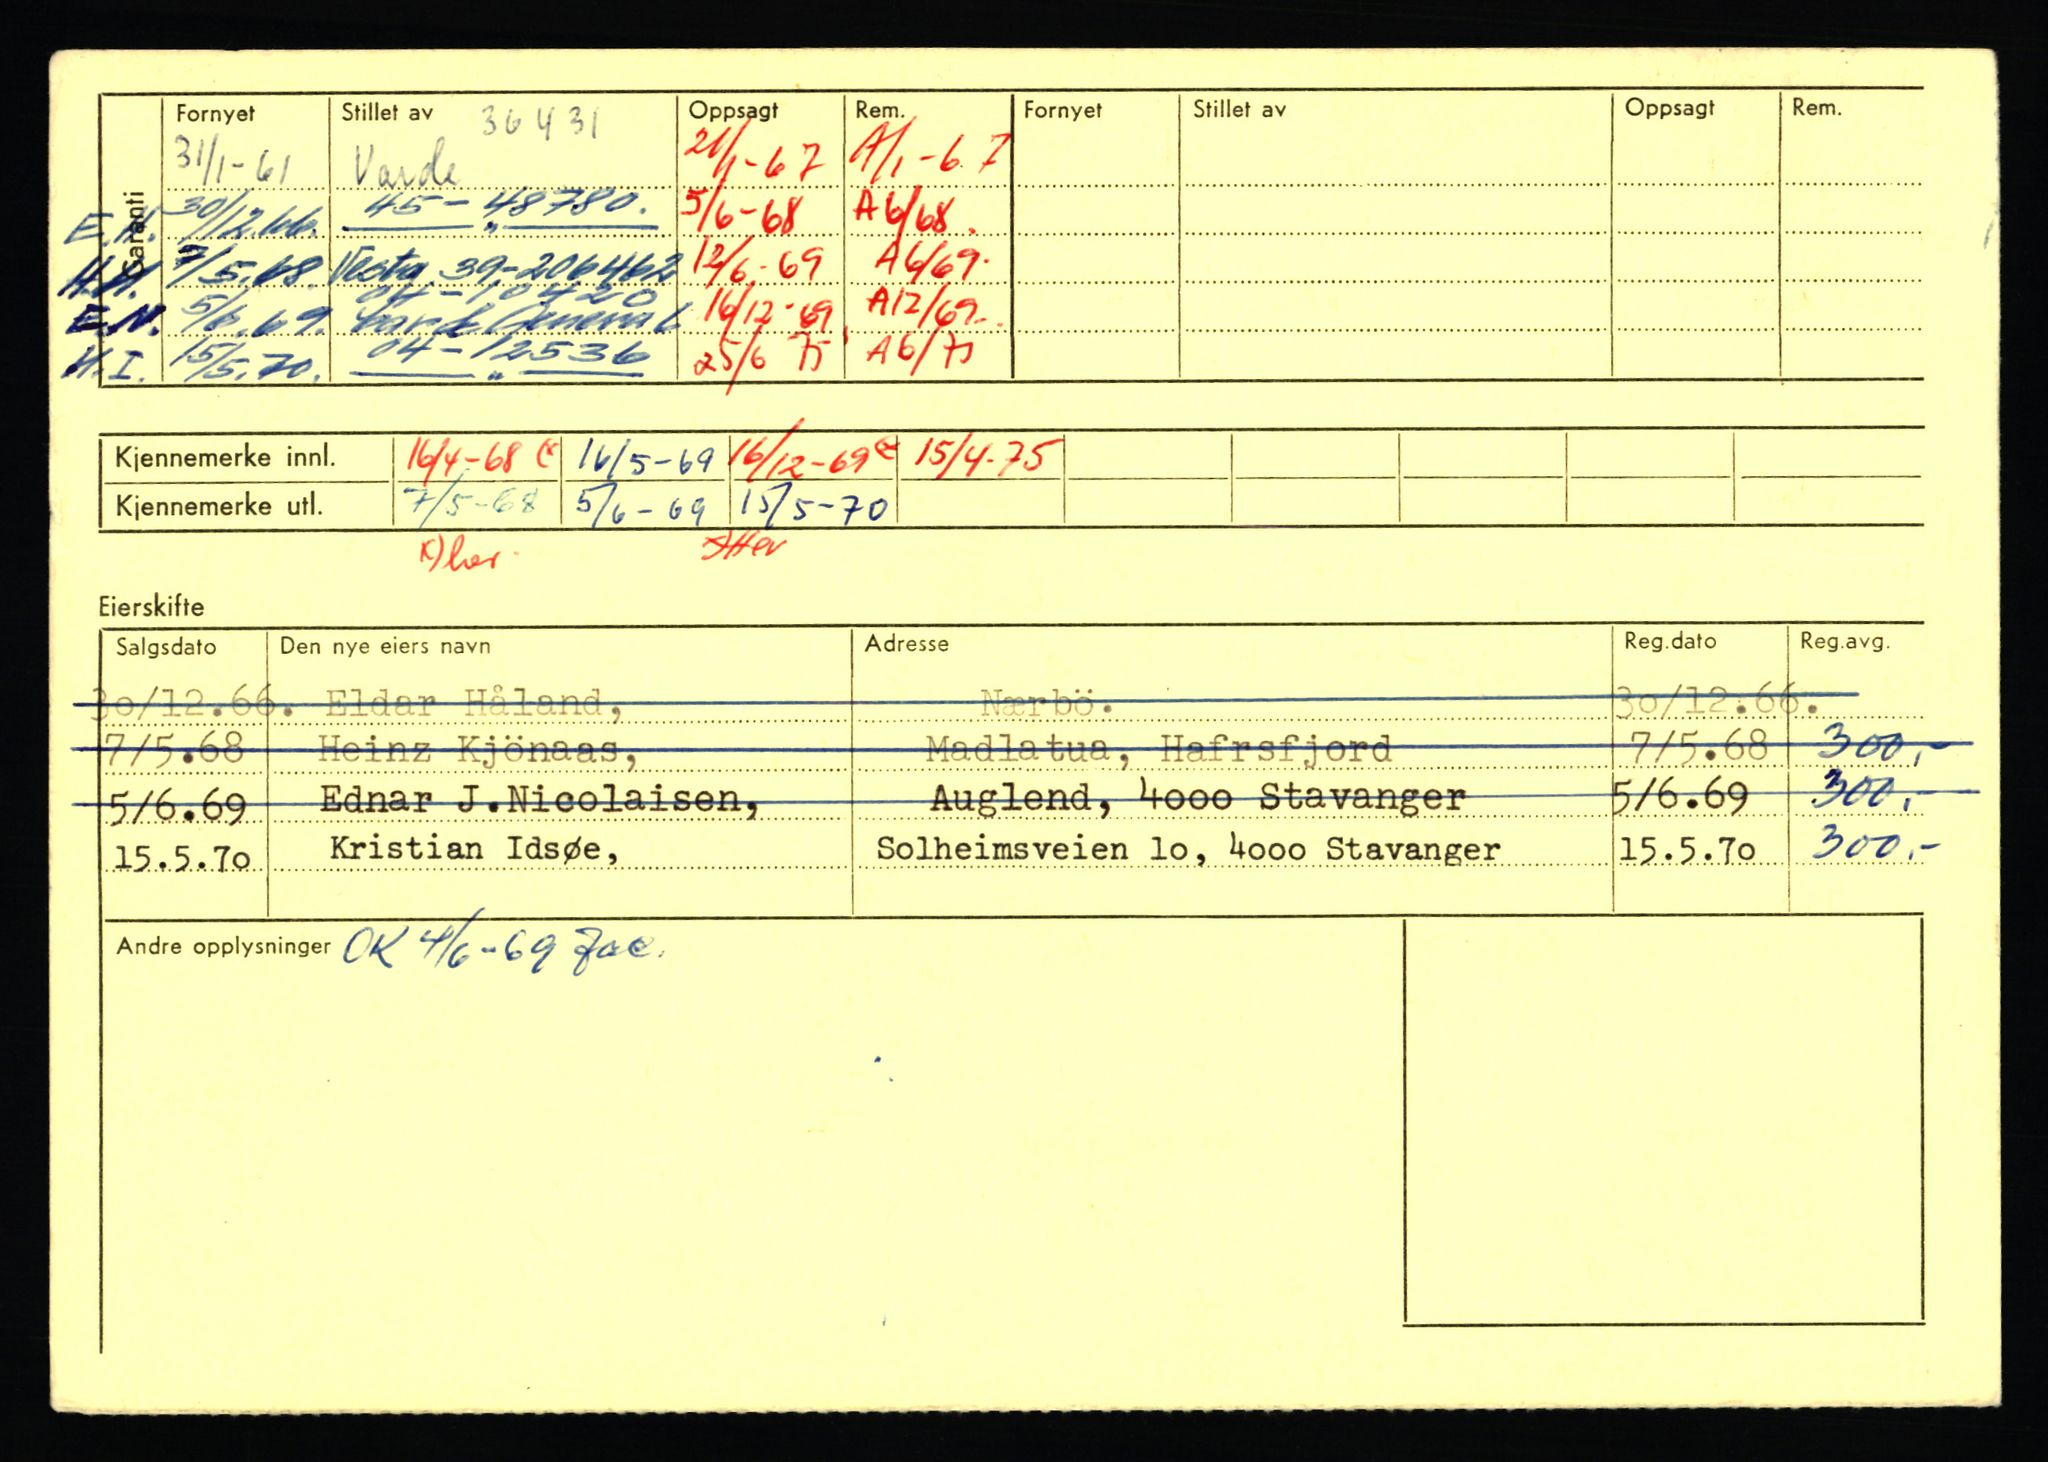 Garanti
Fornyet Stillet av 36431 Oppsagt Rem. Fornyet Stillet av Oppsagt Rem.
31/1-61 Varde 21/1-67 A/1-67
E.H. 30/12.66. 45-48780. 5/6-68 A6/68.
H.K. 7/5.68. Vesta 39-206462 12/6-69 A6/69.
04-10420
E.N. 5/6.69. General 16/12-69 A12/69.
H.I. 15/5.70. 04-12536 25/6 75 A6/75
Kjennemerke innl. 16/4-68 (x 16/5-69 16/12-69 15/4-75
Kjennemerke utl. 7/5-68 5/6-69 15/5-70
x) her
Eierskifte
Salgsdato Den nye eiers navn Adresse Reg.dato Reg.avg.
30/12.66. Eldar Håland, Nærbö. 30/12.66.
7/5.68 Heinz Kjönaas, Madlatua, Hafrsfjord 7/5.68 300,-
5/6.69 Ednar J.Nicolaisen, Auglend, 4000 Stavanger 5/6.69 300,-
15.5.70 Kristian Idsøe, Solheimsveien 10, 4000 Stavanger 15.5.70 300,-
Andre opplysninger OK 4/6-69